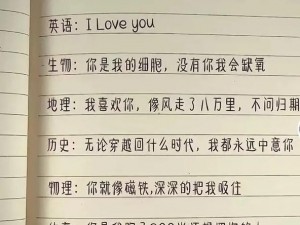 英语：I Love you
生物：你是我的细胞，没有你我会缺氧
地理：我喜欢你，像风走了八万里，不问归期
历史：无论穿越回什么时代，我都永远中意你
物理：你就像磁铁，深深的把我吸住